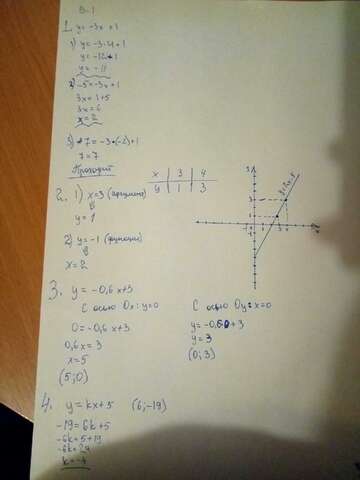 В-1
1. y = -3x + 1
1) y = -3·4+1
y = -12+1
y = -11
2) -5=-3x+1
3x=1+5
3x=6
x=2
3) 7=-3·(-2)+1
7=7
Проходит
x 3 4
y 1 3
2. 1) x=3 (аргумент)
y=1
2) y=-1 (функция)
x=2
3. y = -0,6x+3
С осью Ox: y=0
0=-0,6x+3
0,6x=3
x=5
(5;0)
С осью Oy: x=0
y=-0,6·0+3
y=3
(0;3)
4. y=kx+5 (6;-19)
-19=6k+5
-6k=5+19
-6k=24
k=-4